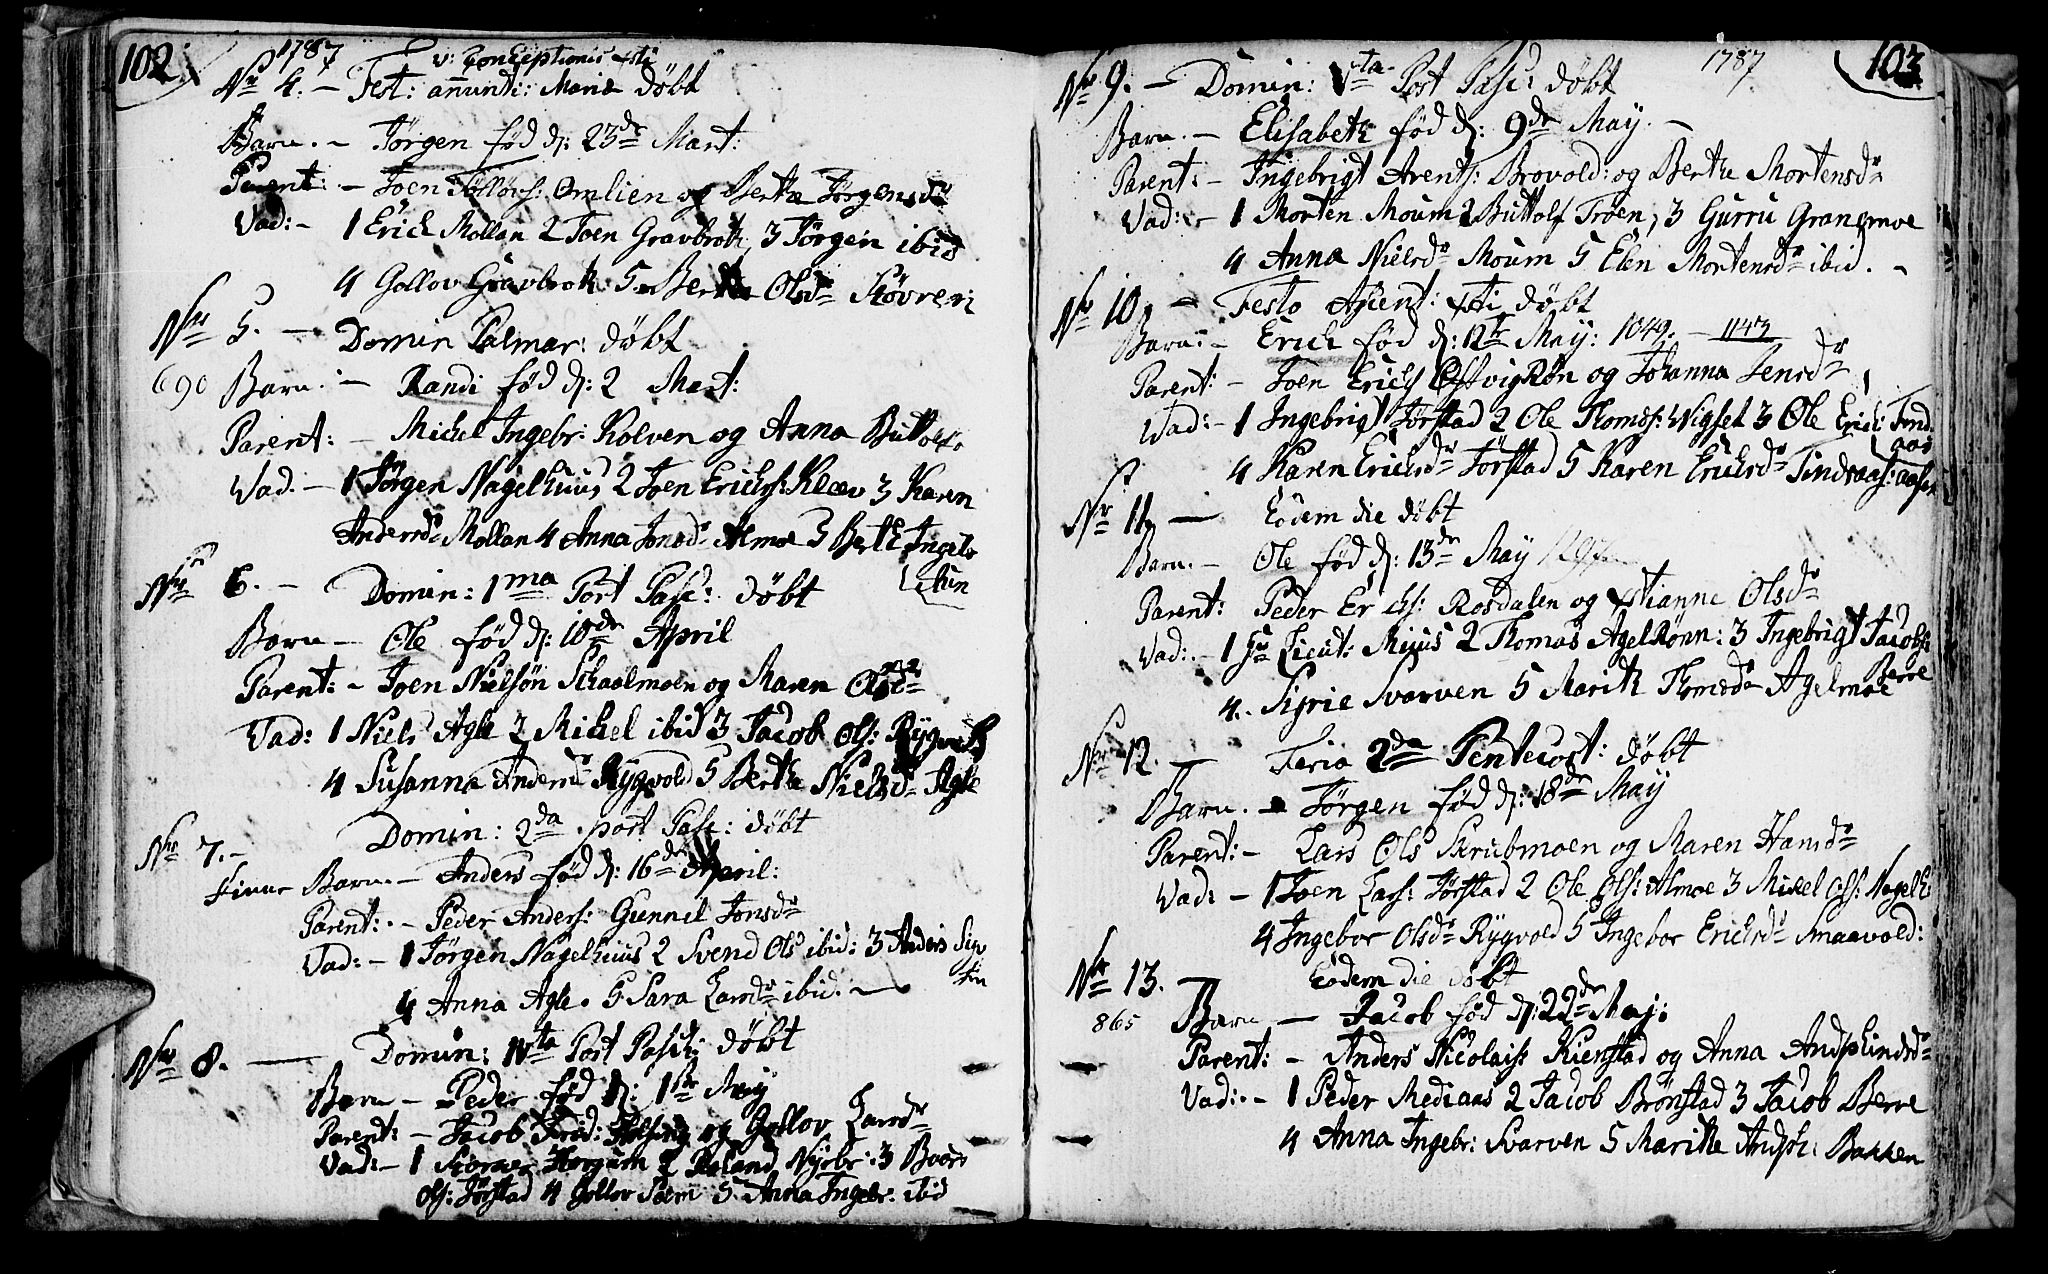 102
1787
v: Conceptionis xsti
No 4. – Fest: anunti: Mariæ døbt
Barn. – Jörgen fød d: 23de Mart:
Parent: – Joen Tollovs: Omlien og Berte Jörgensdr
Vad: – 1 Erich Mollan 2 Joen Gravbrott, 3 Jörgen ibid
4 Gollov Gravbrot 5 Berte Olsdr
No 5. – Domin Palmar: døbt
690 Barn. – Randi fød d: 2 Mart:
Parent: – Michel Ingebr: Kolven og Anna
Vad. – 1 Jörgen Nagelhuus 2 Joen Erichs: Kleev 3 Karen
Andersdr Mollan 4 Anna Jonsdr Almoe 5 Berte Ingebr
No 6. – Domin: 1ma Post Pasc: døbt
Barn – Ole fød d: 10de April
Parent: – Joen Nielsön Schaalmoen og Maren Olsdr
Vad: 1 Niels Agle 2 Michel ibid 3 Jacob Ols: Rygvold
4 Susanna Andersdr Rygvold 5 Berthe Nielsdr Agle
No 7. – Domin: 2da post Pasc: døbt
Finne Barn. – Anders fød d: 16de April:
Parent: – Peder Anders: Gunnil Jonsdr
Vad: – 1 Jörgen Nagelhuus 2 Svend Ols ibid: 3 Anders
4 Anna Agle. 5 Sara Larsdr ibid. –
No 8. – Domin: IVta Post Pasch: døbt
Barn – Peder fød d: 1ste May
Parent: – Jacob og Gollov Larsdr
Vad: – 1 2 Roland 3 Baard
Ols: Jörstad 4 Gollov Seem 5 Anna Ingebr: ibid
1787 103
No 9. – Domin: Vta Post Pasc: døbt
Barn. – Elisabeth fød d: 9de May. –
Parent: – Ingebrigt Arents: Brovold: og Berthe Mortensdr
Vad: – 1 Morten Moum 2 Buttolf Troen, 3 Gurru Grandmoe
4 Anna Nielsdr Moum 5 Elen Mortensdr ibid. –
No 10, – Festo Ascent: xsti døbt
Barn: – Erich fød d: 12te May: 1049. – 1143
Parent: – Joen Erichs Østvigrön og Johanna Jensdr
Vad: – 1 Ingebrigt Jörstad 2 Ole Thomæs: Vigset 3 Ole Erich: Tind
aas
4 Karen Erichsdr Jörstad 5 Karen Erichsdr Tindaas:aasen
No 11, – Eodem die døbt
Barn. – Ole fød d: 13de May 1297
Parent: Peder Erichs: Rosdalen og Stianne Olsdr
Vad: – 1 Sr Lieut: Mejus 2 Thomas Agelrönn: 3 Ingebrigt Jacobs:
Berre
4. Sigrie Svarven 5 Marith Thomædr Agelmoe
No 12. – Feria 2da Pentecost: døbt
Barn. – Jörgen fød d: 18de May
Parent: – Lars Ols Skrubmoen og Maren Hansdr
Vad: – 1 Joen Lars: Jörstad 2 Ole Ols: Almoe 3 Michel Ols: Nagelh:
4 Ingebor Olsdr Rygvold 5 Ingebor Erichsdr Snaavold:
No 13. – Eodem die døbt
865 Barn – Jacob fød d: 22de Maj:
Parent: – Anders Nicolais: Kienstad og Anna
Vad: – 1 Peder Mediaas 2 Jacob Brønstad 3 Jacob Berre
4 Anna Ingebr: Svarven 5 Marithe Bakken